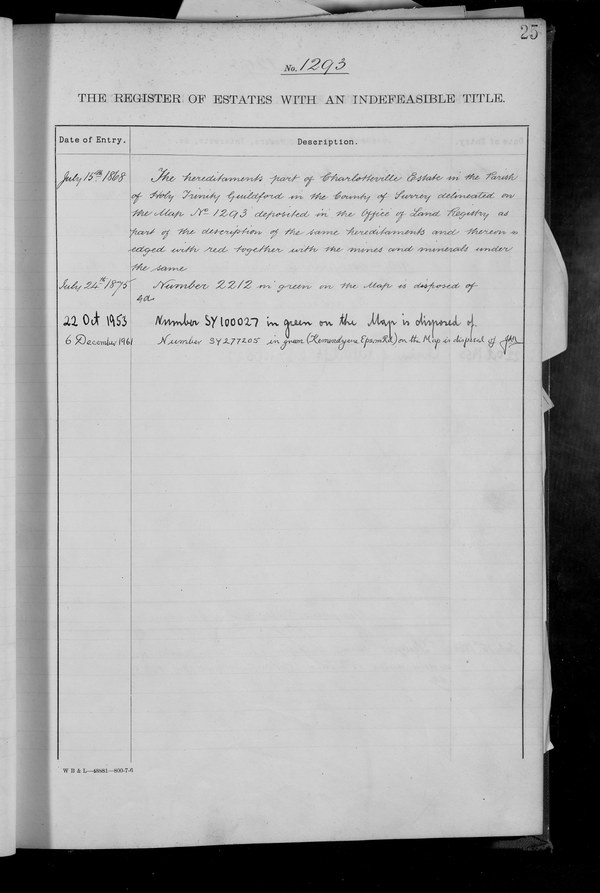 25
No. 1293
THE REGISTER OF ESTATES WITH AN INDEFEASIBLE TITLE.
Date of Entry.
Description.
July 15th 1868
The hereditaments part of Charlotteville Estate in the Parish
of Holy Trinity Guildford in the County of Surrey delineated on
the Map No 1293 deposited in the Office of Land Registry as
part of the description of the same hereditaments and thereon
edged with red together with the mines and minerals under
the same
July 24th 1875
Number 2212 in green on the Map is disposed of
22 Oct 1953
Number SY100027 in green on the Map is disposed of.
6 December 1961
Number SY277205 in green ( Epsom Rd) on the Map is disposed of
W B & L—48881—800-7-6